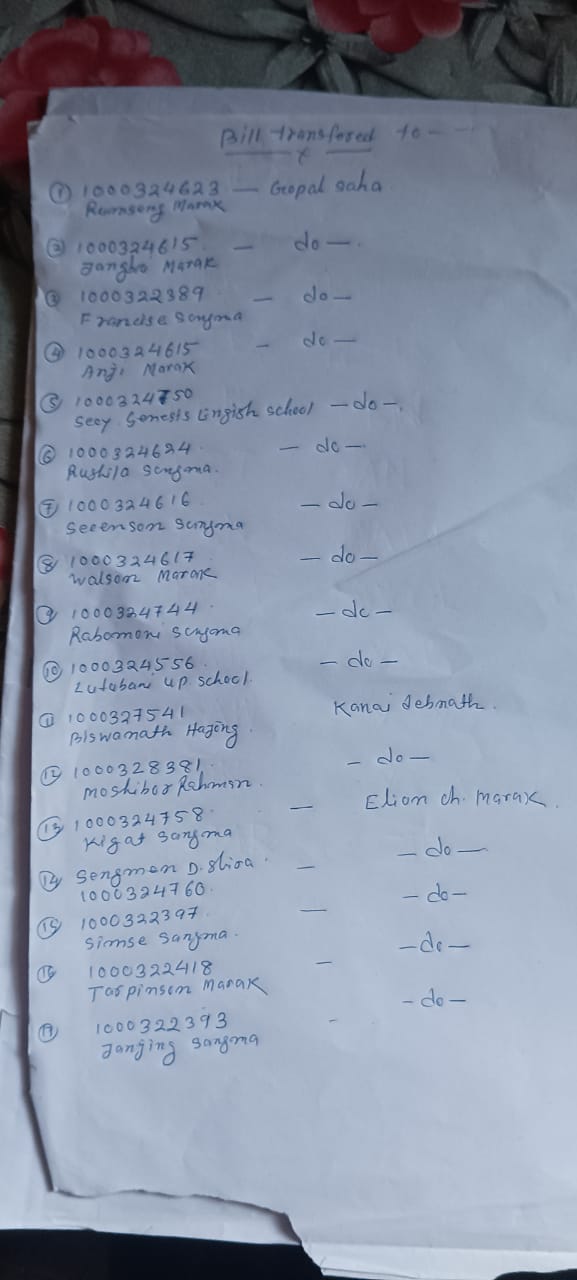 Bill transfered to - -
① 1000324623 — Gopal saha
Rumseng Marak
② 1000324615 — do —
Jangbo Marak
③ 1000322389 — do —
Francise Sangma
④ 1000324615 - do —
Anji Marak
⑤ 1000324750
Secy Genesis Lingish school — do —
⑥ 1000324624 — do —
Rushila Sangma.
⑦ 1000324616 — do —
Seeenson Sangma
⑧ 1000324617 — do —
Walson Marak
⑨ 1000324744 — do —
Rabomoni Sangma
⑩ 1000324556 — do —
Lutubari up. school.
⑪ 1000327541 Kanai debnath.
Biswanath Hajong
⑫ 1000328381 — do —
Moshibor Rahman.
⑬ 1000324758 — Elion ch. Marak.
Kigat Sangma
⑭ Sengman D. Shira — — do —
1000324760. — do —
⑮ 1000322397 —
Simse Sangma. — do —
⑯ 1000322418 —
Tarpinson Marak — do —
⑰ 1000322393 -
Janjing Sangma